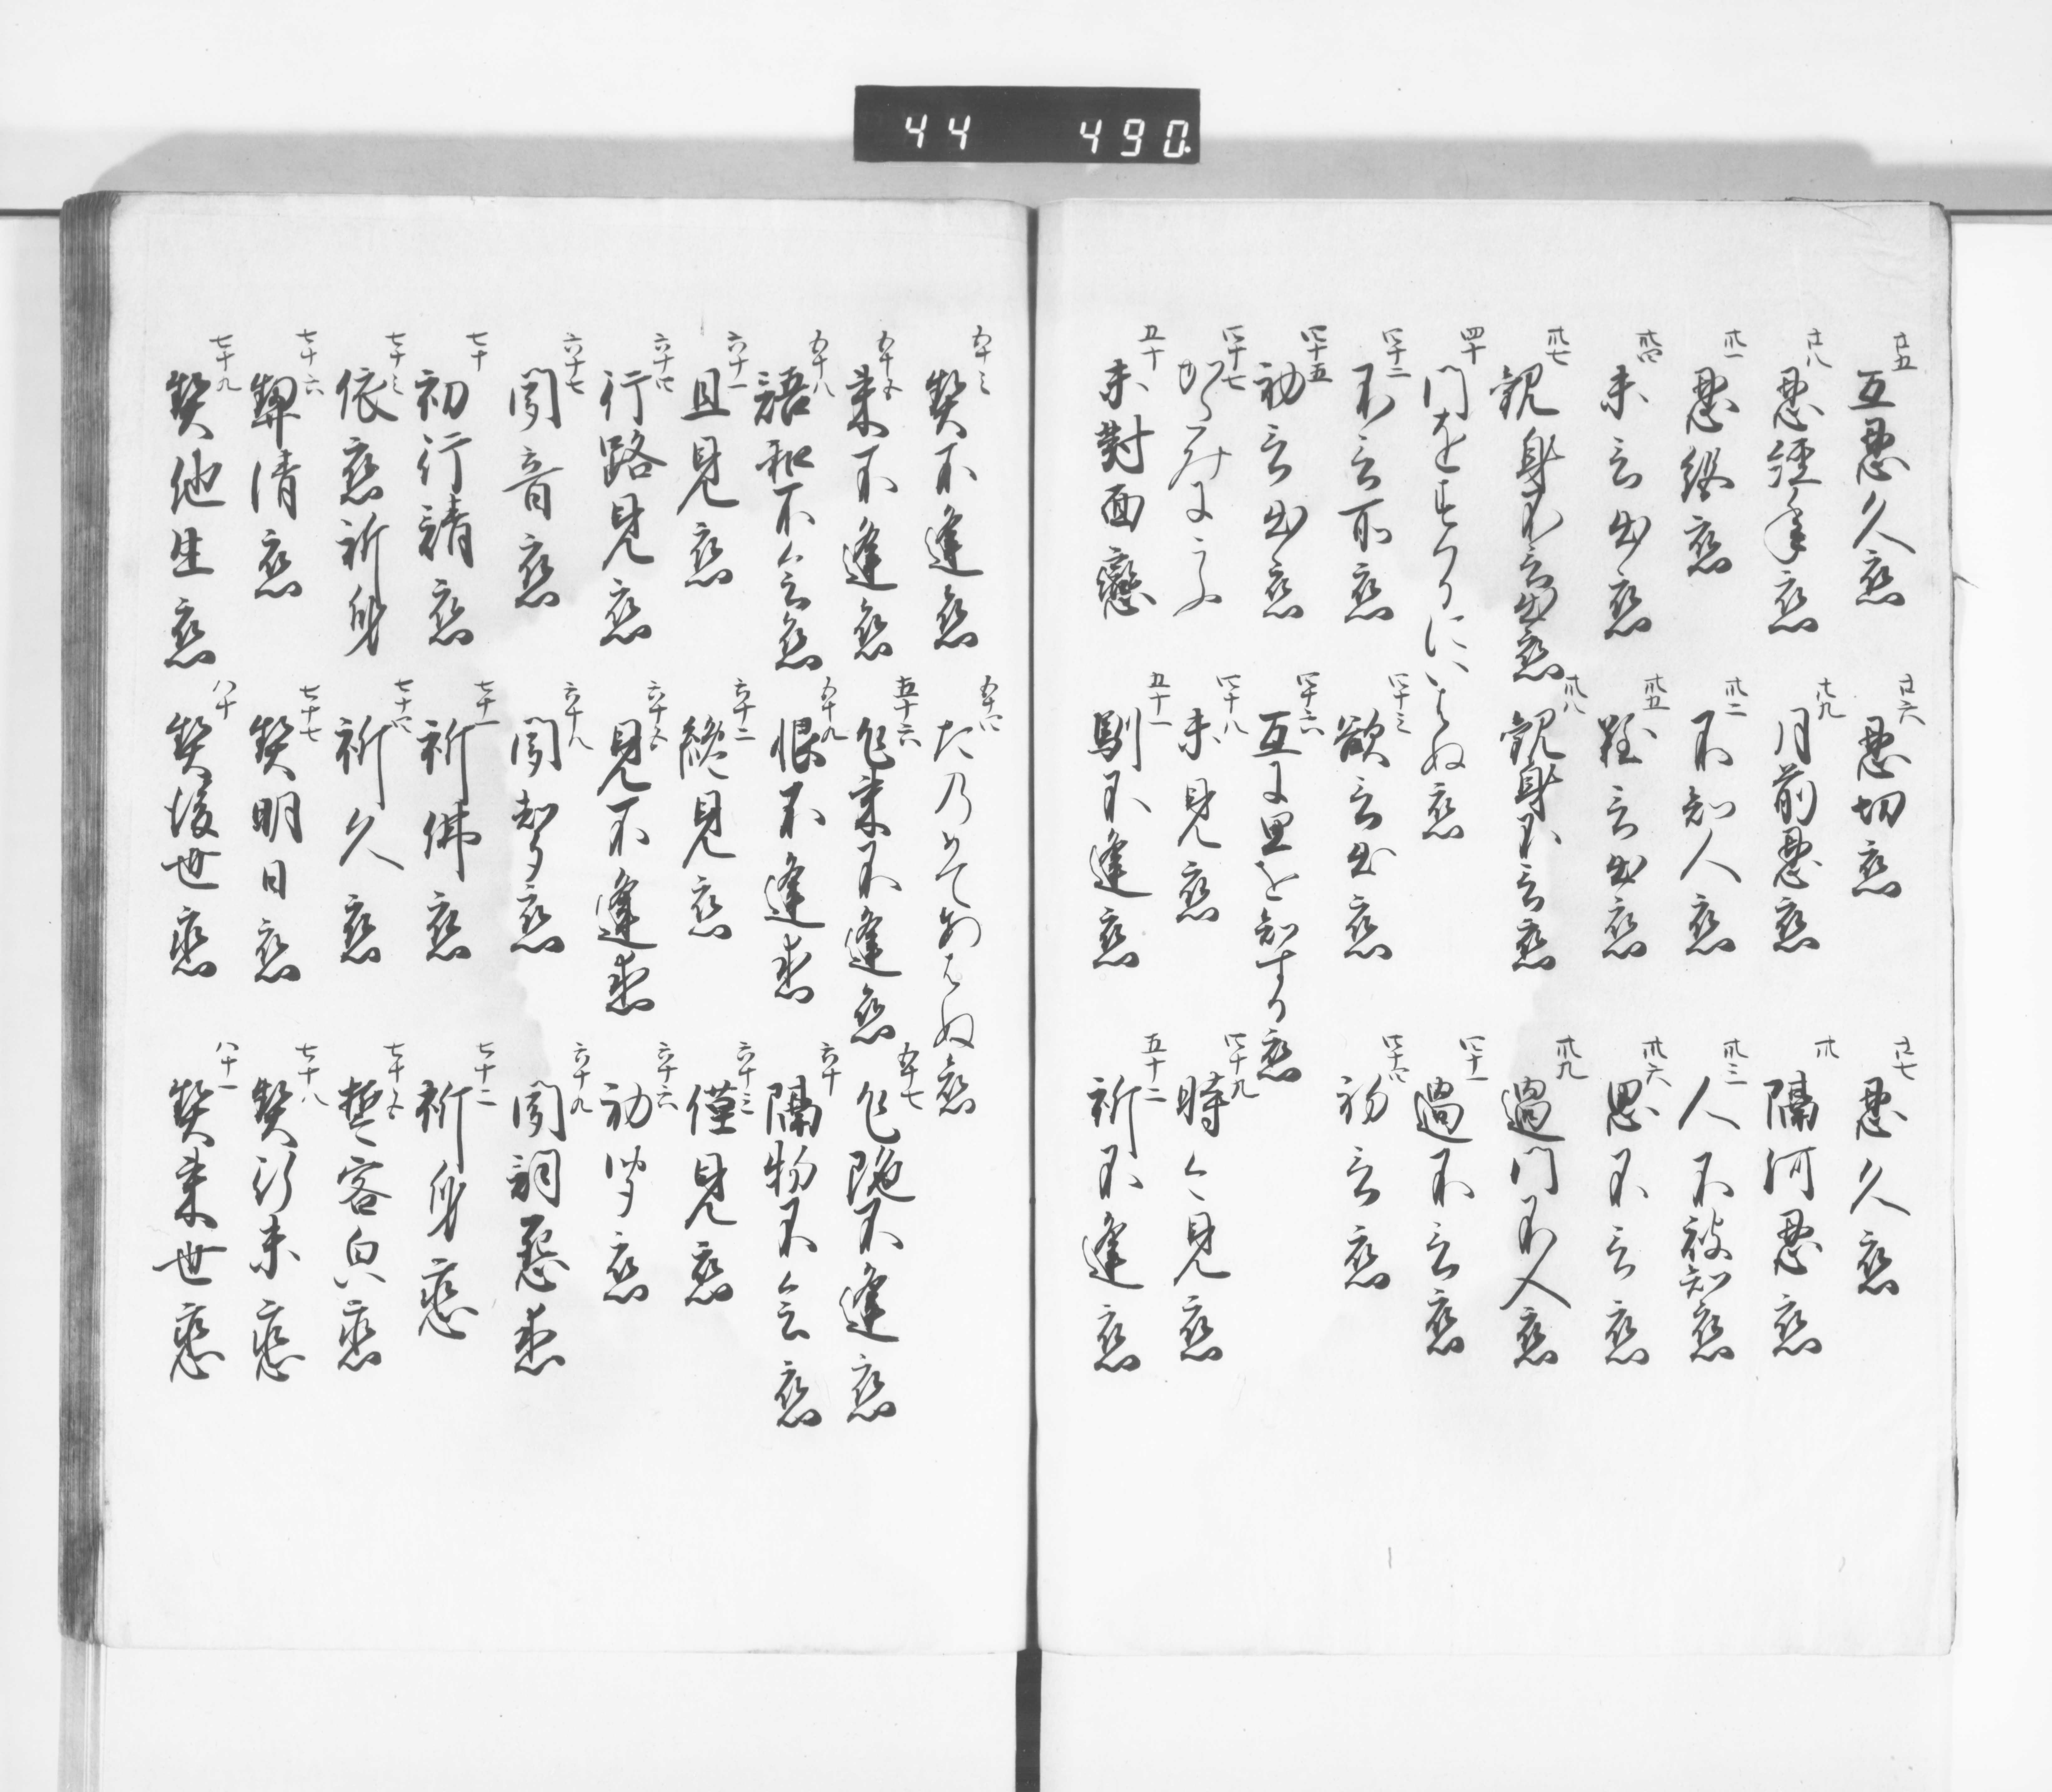 44 490
廿五 互忍久恋 廿六 忍切恋 廿七 忍久恋
廿八 忍経年恋 廿九 月前忍恋 卅 隔河忍恋
卅一 忍絶恋 卅二 不知人恋 卅三 人不被知恋
卅四 未言出恋 卅五 難言出恋 卅六 思不言恋
卅七 観身不言出恋 卅八 観身不言恋 卅九 過門不入恋
四十 門をすくれにいらぬ恋 四十一 過不言恋
四十二 不言所恋 四十三 欲言出恋 四十四 初言恋
四十五 初言出恋 四十六 互に思を知する恋
四十七 四十八 未見恋 四十九 時々見恋
五十 未對面戀 五十一 馴不逢恋 五十二 祈不逢恋
五十三 契不逢恋 五十四 たのめてあはぬ恋
五十五 来不逢恋 五十六 乍来不逢恋 五十七 乍随不逢恋
五十八 語和不会恋 五十九 恨不逢恋 六十 隔物不会恋
六十一 且見恋 六十二 纔見恋 六十三 僅見恋
六十四 行路見恋 六十五 見不逢恋 六十六 初聞恋
六十七 聞音恋 六十八 聞声恋 六十九 聞詞忍恋
七十 初行請恋 七十一 祈佛恋 七十二 祈身恋
七十三 依恋祈身 七十四 祈久恋 七十五 誓客白恋
七十六 契清恋 七十七 契明日恋 七十八 契行末恋
七十九 契他生恋 八十 契後世恋 八十一 契来世恋